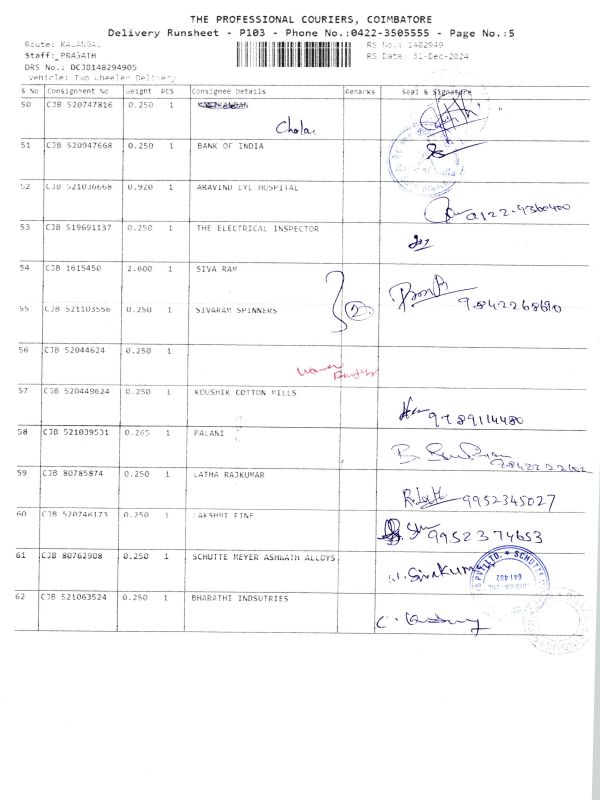 THE PROFESSIONAL COURIERS, COIMBATORE
Delivery Runsheet - P103 - Phone No.:0422-3505555 - Page No.:5
Route: KALANGAL
RS No.: 1482949
Staff: PRASATH
RS Date: 31-Dec-2024
DRS No.: DCJB148294905
Vehicle: Two Wheeler Delivery
S No Consignment No Weight PCS Consignee Details Remarks Seal & Signature
50 CJB 520747816 0.250 1
Chola
51 CJB 520947668 0.250 1 BANK OF INDIA
52 CJB 521036668 0.920 1 ARAVIND EYE HOSPITAL
0422-4360400
53 CJB 519691137 0.250 1 THE ELECTRICAL INSPECTOR
54 CJB 1615450 2.600 1 SIVA RAM
9842268690
55 CJB 521103556 0.250 1 SIVARAM SPINNERS
2
56 CJB 52044624 0.250 1
57 CJB 520449624 0.250 1 KOUSHIK COTTON MILLS
9789114480
58 CJB 521039531 0.265 1 PALANI
59 CJB 80785874 0.250 1 LATHA RAJKUMAR
R.Latha 9952345027
60 CJB 520746173 0.250 1 LAKSHMI FINE
9952374653
61 CJB 80762908 0.250 1 SCHUTTE MEYER ASHWATH ALLOYS
Sivakumar
PVT. LTD. * SCHUTTE
641 402
62 CJB 521063524 0.250 1 BHARATHI INDSUTRIES